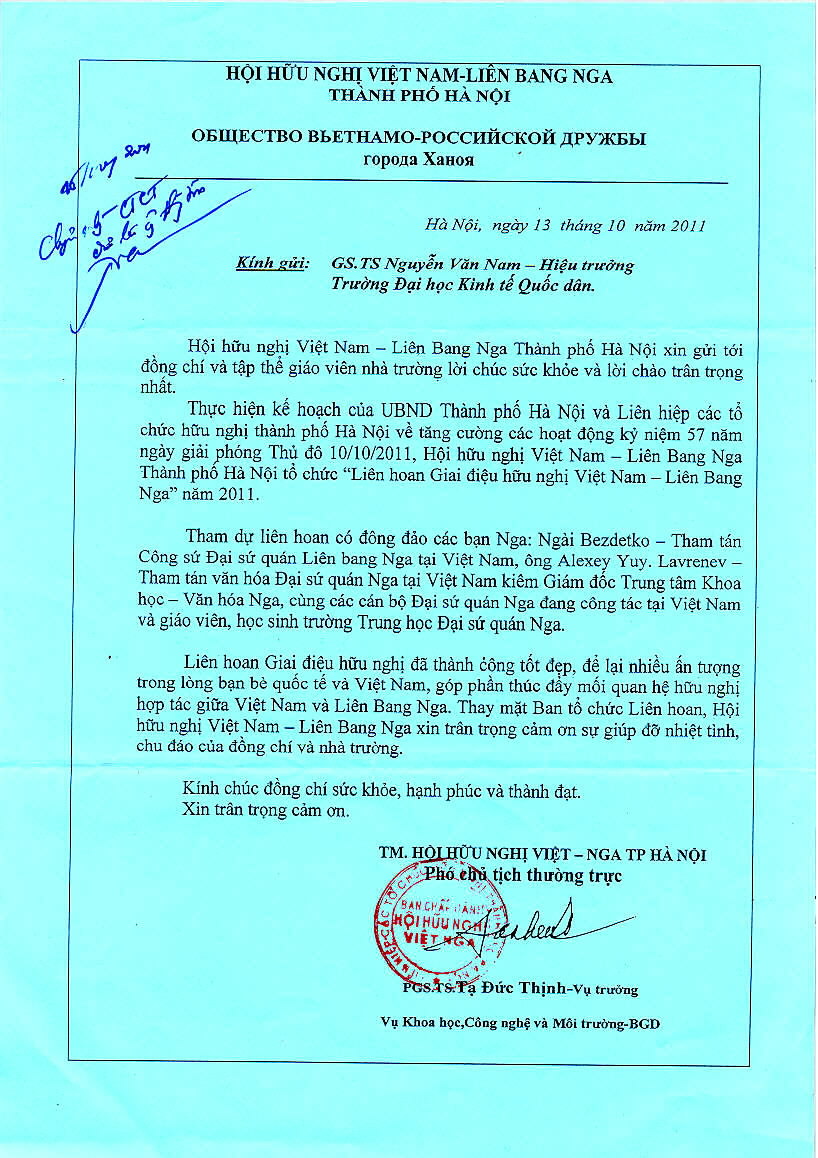 HỘI HỮU NGHỊ VIỆT NAM-LIÊN BANG NGA
THÀNH PHỐ HÀ NỘI
ОБЩЕСТВО ВЬЕТНАМО-РОССИЙСКОЙ ДРУЖБЫ
города Ханоя
Hà Nội, ngày 13 tháng 10 năm 2011
Kính gửi: GS.TS Nguyễn Văn Nam – Hiệu trưởng
Trường Đại học Kinh tế Quốc dân.
Hội hữu nghị Việt Nam – Liên Bang Nga Thành phố Hà Nội xin gửi tới
đồng chí và tập thể giáo viên nhà trường lời chúc sức khỏe và lời chào trân trọng
nhất.
Thực hiện kế hoạch của UBND Thành phố Hà Nội và Liên hiệp các tổ
chức hữu nghị thành phố Hà Nội về tăng cường các hoạt động kỷ niệm 57 năm
ngày giải phóng Thủ đô 10/10/2011, Hội hữu nghị Việt Nam – Liên Bang Nga
Thành phố Hà Nội tổ chức “Liên hoan Giai điệu hữu nghị Việt Nam – Liên Bang
Nga” năm 2011.
Tham dự liên hoan có đông đảo các bạn Nga: Ngài Bezdetko – Tham tán
Công sứ Đại sứ quán Liên bang Nga tại Việt Nam, ông Alexey Yuy. Lavrenev –
Tham tán văn hóa Đại sứ quán Nga tại Việt Nam kiêm Giám đốc Trung tâm Khoa
học – Văn hóa Nga, cùng các cán bộ Đại sứ quán Nga đang công tác tại Việt Nam
và giáo viên, học sinh trường Trung học Đại sứ quán Nga.
Liên hoan Giai điệu hữu nghị đã thành công tốt đẹp, để lại nhiều ấn tượng
trong lòng bạn bè quốc tế và Việt Nam, góp phần thúc đẩy mối quan hệ hữu nghị
hợp tác giữa Việt Nam và Liên Bang Nga. Thay mặt Ban tổ chức Liên hoan, Hội
hữu nghị Việt Nam – Liên Bang Nga xin trân trọng cảm ơn sự giúp đỡ nhiệt tình,
chu đáo của đồng chí và nhà trường.
Kính chúc đồng chí sức khỏe, hạnh phúc và thành đạt.
Xin trân trọng cảm ơn.
TM. HỘI HỮU NGHỊ VIỆT – NGA TP HÀ NỘI
Phó chủ tịch thường trực
BAN CHẤP HÀNH
HỘI HỮU NGHỊ
VIỆT NGA
PGS.TS.Tạ Đức Thịnh-Vụ trưởng
Vụ Khoa học,Công nghệ và Môi trường-BGD